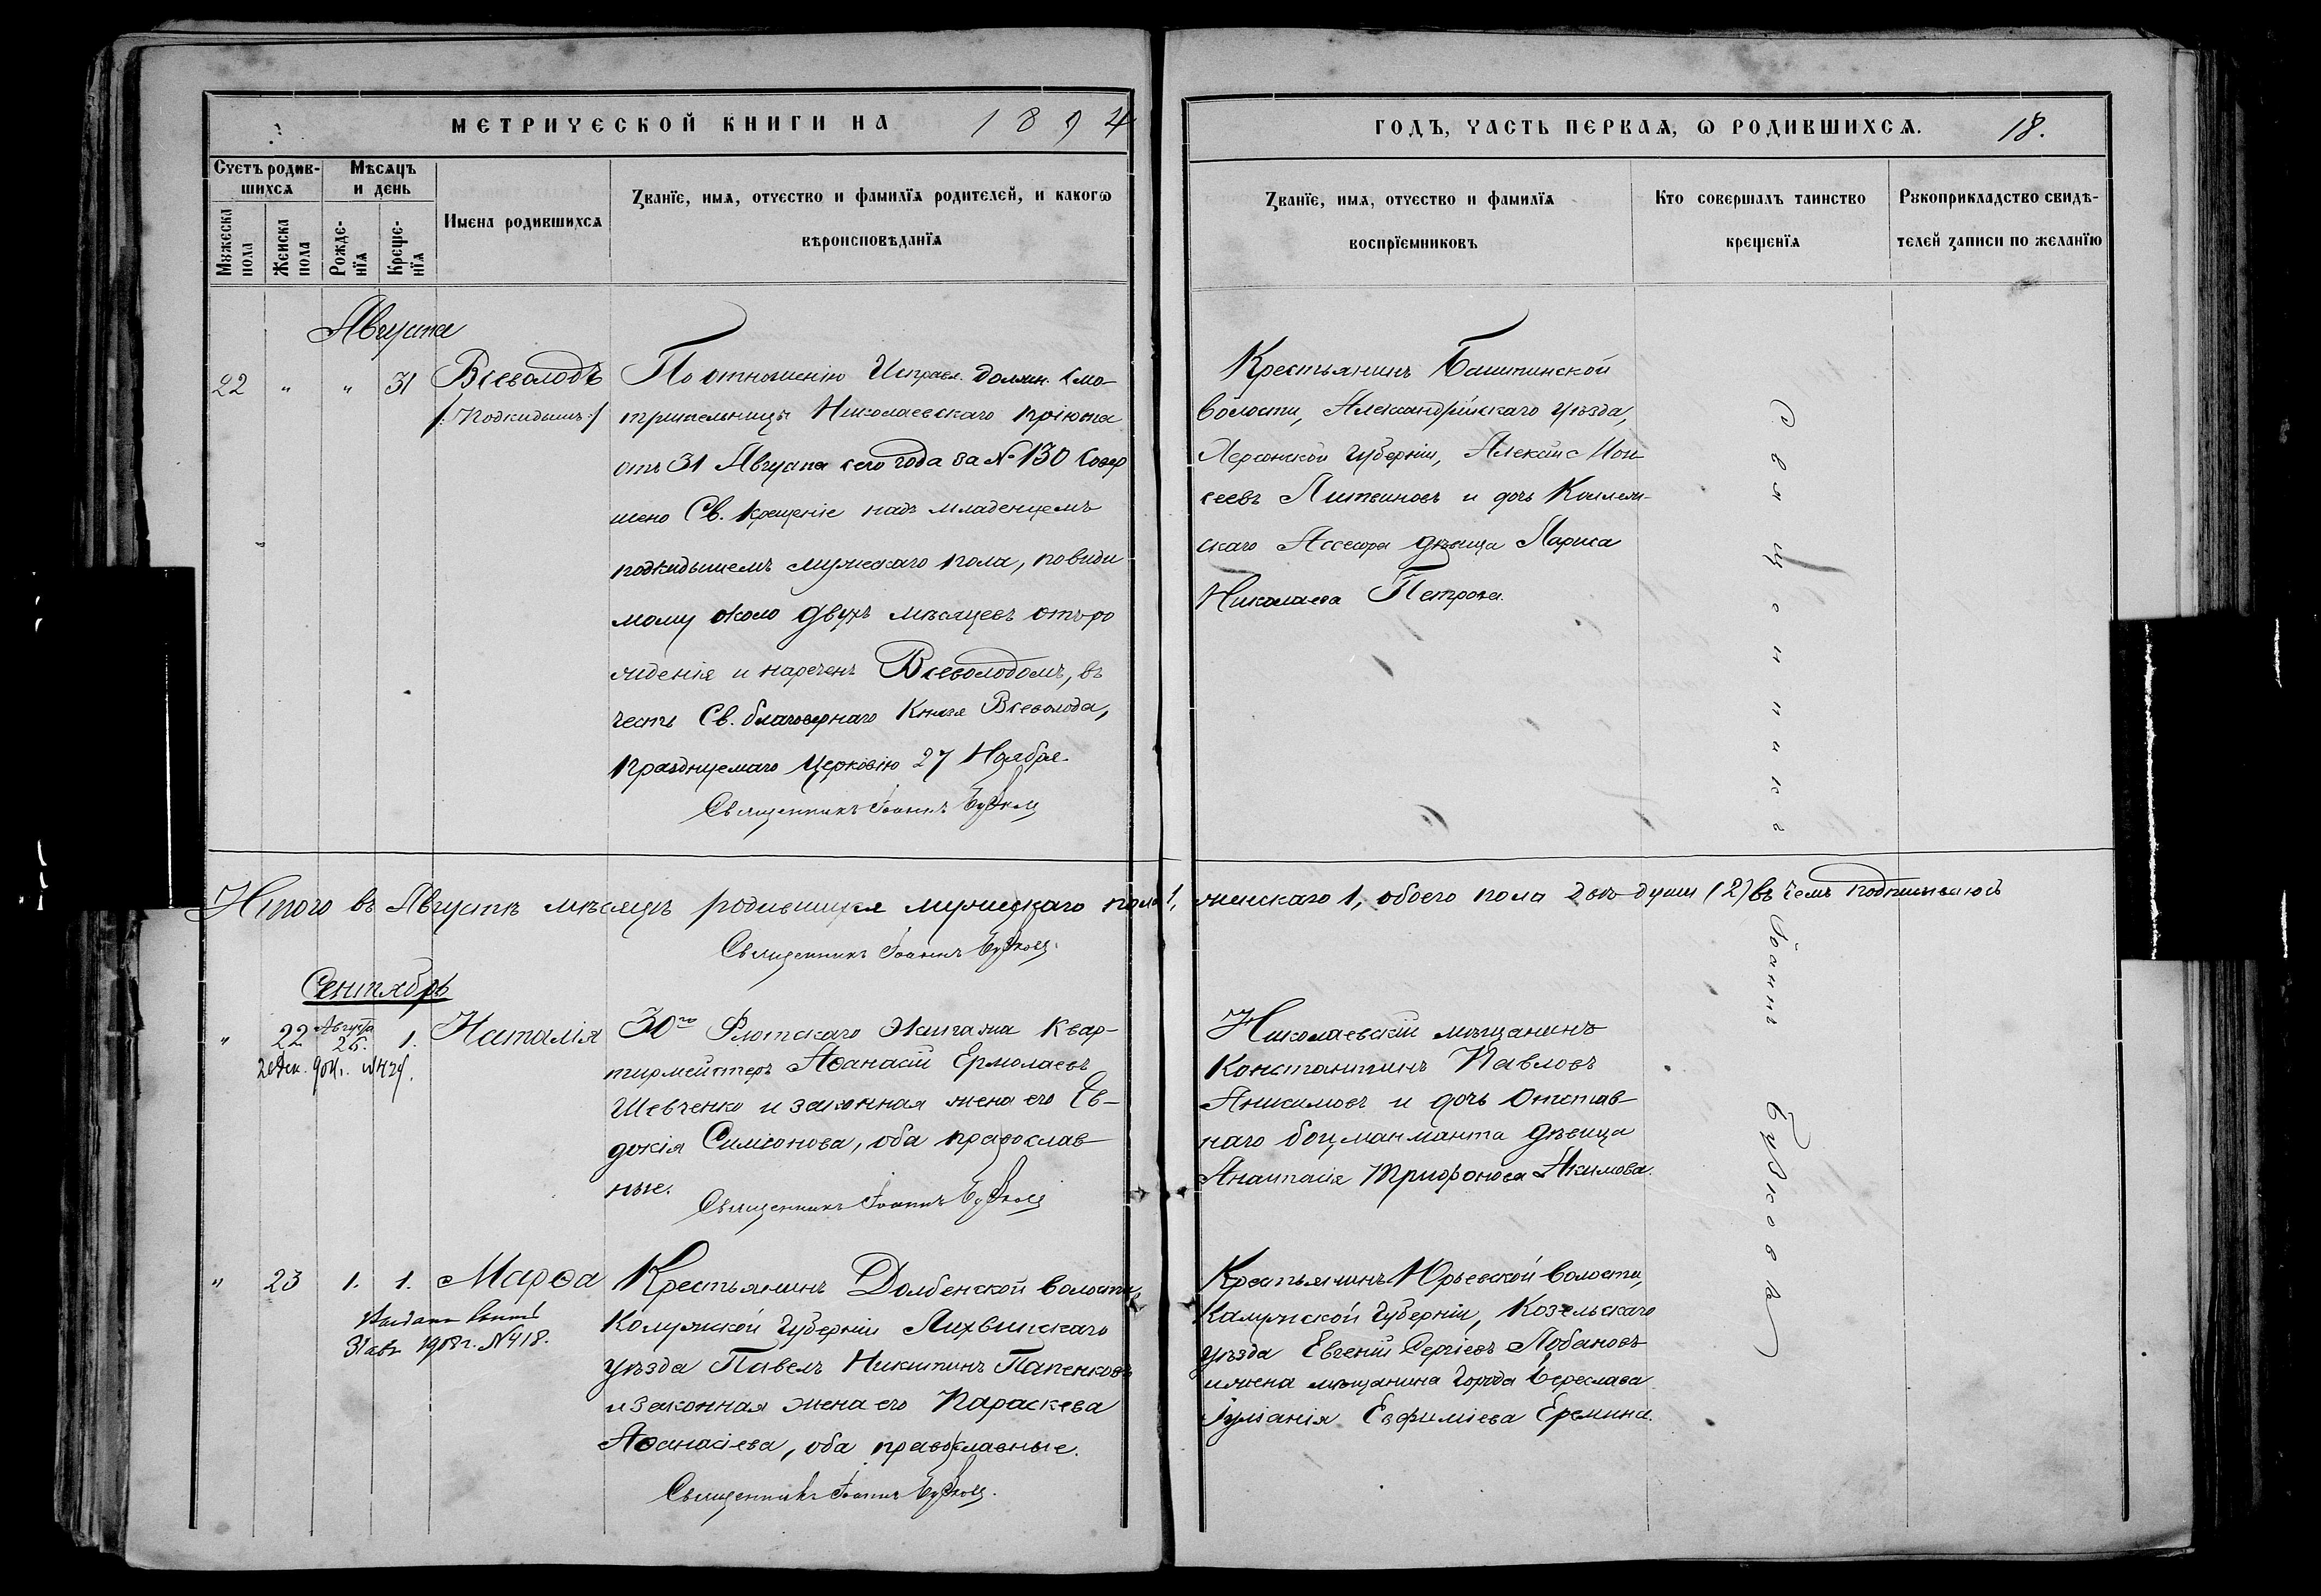 МЕТРИЧЕСКОЙ КНИГИ НА 1894
ГОДЪ, ЧАСТЬ ПЕРВАЯ, Ѡ РОДИВШИХСЯ. 18.
Счетъ родив-
шихся
Мѣсяцъ
и день
Мужеска
пола
Женска
пола
Рожде-
нїя
Креще-
нїя
Имена родившихся
Званїе, имя, отчество и фамилїя родителей, и какогѡ
вѣроисповѣданїя
Званїе, имя, отчество и фамилїя
воспрїемниковъ
Кто совершалъ таинство
крещенїя
Рукоприкладство свидѣ-
телей записи по желанїю
Августа
22 " " 31 Всеволодъ
/: Подкидышъ :/
По отношенію Исправл. должн. смо-
трительницы Николаевскаго пріюта
отъ 31 Августа сего года за № 130 совер
шено Св. крещеніе надъ младенцемъ
подкидышемъ мужескаго пола, повиди
мому около двухъ мѣсяцевъ отъ ро
жденія и нареченъ Всеволодомъ, въ
честь Св. благовернаго Князя Всеволода,
празднуемаго Церковію 27 Ноября.
Священникъ Іоаннъ
Крестьянинъ
волости, Александрійскаго уѣзда,
Херсонской губерніи, Алексій Мои
сеевъ Литвиновъ и дочь Коллеж-
скаго Ассесора дѣвица Лариса
Николаева Петрова.
Священникъ Іоаннъ
Итого въ Августѣ мѣсяцѣ родившихся мужескаго пола 1, женскаго 1, обоего пола двѣ души (2) въ чемъ подписываюсь
Священникъ Іоаннъ
Сентябрь
" 22 Августа 26. 1. Наталія
30го Флотскаго Экипажа Квар-
тирмейстеръ Аѳанасій Ермолаевъ
Шевченко и законная жена его Ев-
докія Симеонова, оба православ-
ные.
Священникъ Іоаннъ
Николаевскій мѣщанинъ
Константинъ Павловъ
Анисимовъ и дочь Отстав-
наго боцманманта дѣвица
Анастасія Трифонова Акимова.
" 23 1. 1. Марѳа
1908 г. № 418.
Крестьянинъ Долбенской волости,
Калужской губерніи Лихвинскаго
уѣзда Павелъ Никитинъ Папенковъ
и законная жена его Параскева
Аѳанасіева, оба православные.
Священникъ Іоаннъ
Крестьянинъ Юрьевской волости,
Калужской губерніи, Козельскаго
уѣзда Евгеній Сергіевъ Лобановъ
и жена мѣщанина города Береслава
Іуліанія Евфиміева Еремина.